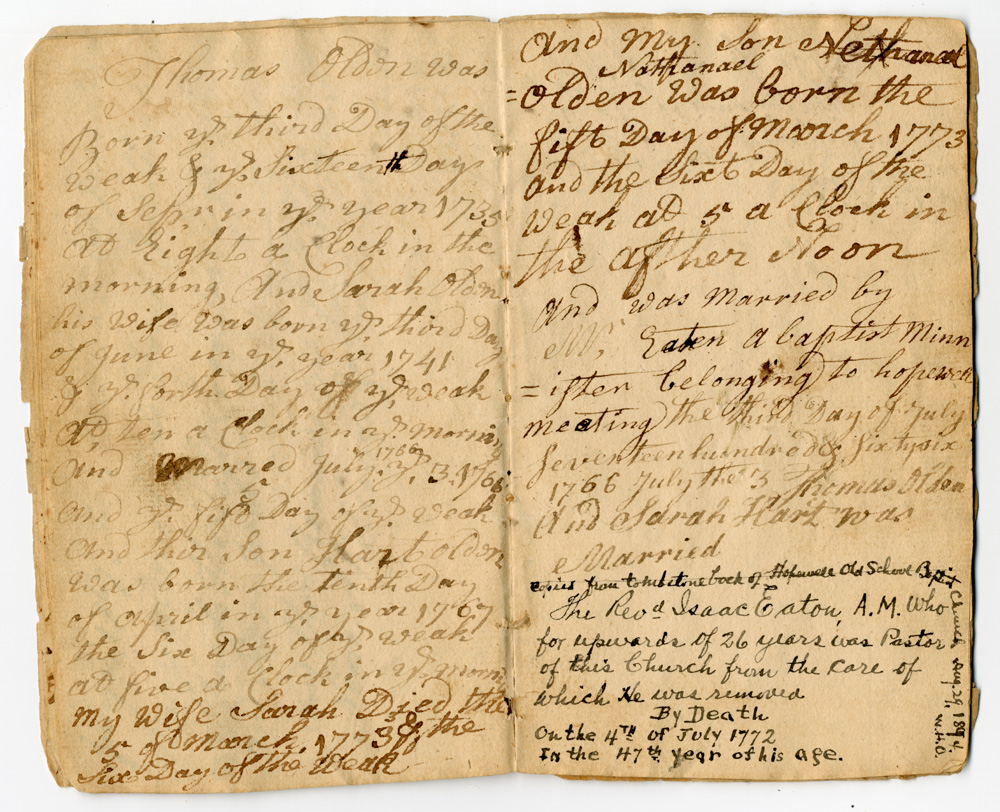 Thomas Olden was
Born ye third Day of the
Weak & ye Sixteenth Day
of Sepr in ye year 1735
at Eight a Clock in the
morning, And Sarah Olden
his Wife Was born ye third Day
of June in ye year 1741
& ye forth Day of ye weak
At ten a Clock in ye morning
And Marred July ye 3 1766
1766
And ye fift Day of ye weak
And ther Son Hart olden
Was born the tenth Day
of April in ye year 1767
the Six Day of ye weak
at five a Clock in ye morni
my Wife Sarah Died the
5 of March 1773 & the
Six Day of the Weak
And My Son Nethanael
Nathanael
=Olden Was born the
fift Day of March 1773
and the Sixt Day of the
Weak at 5 a Clock in
the after Noon
And was Married by
Mr. Eaten a baptist Minn
=ister belonging to hopewell
meeting the third Day of July
Seventeenhundred & Sixtysix
1766 July the 3 Thomas Olden
And Sarah Hart was
Married
Copied from tombstone back of Hopewell Old School Baptist Church Aug. 29, 1894. W.H.O.
The Revd Isaac Eaton, A.M. Who
for upwards of 26 years was Pastor
of this Church from the care of
which He was removed
By Death
On the 4TH of July 1772
In the 47th year of his age.